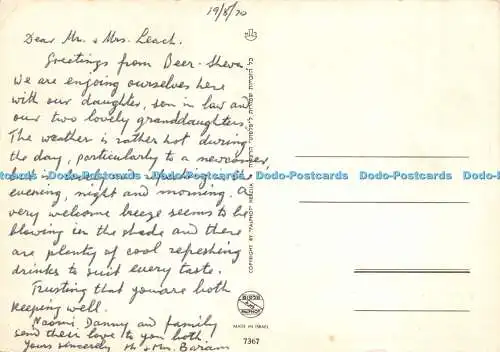 19/8/70
Dear Mr. & Mrs. Leach.
Greetings from Beer-Sheva.
We are enjoying ourselves here
with our daughter, son in law and
our two lovely granddaughters.
The weather is rather hot during
the day, particularly to a newcomer,
but is lovely and refreshing in the
evening, night and morning. A
very welcome breeze seems to be
blowing in the shade and there
are plenty of cool refreshing
drinks to suit every taste.
Trusting that you are both
keeping well.
Naomi, Danny and family
send their love to you both
Yours sincerely Mr & Mrs. Baram
Dodo-Postcards Dodo-Postcards Dodo-Postcards Dodo-Postcards Dodo-Postcards
COPYRIGHT BY "PALPHOT" HERZLIA
PALPHOT
MADE IN ISRAEL
7367